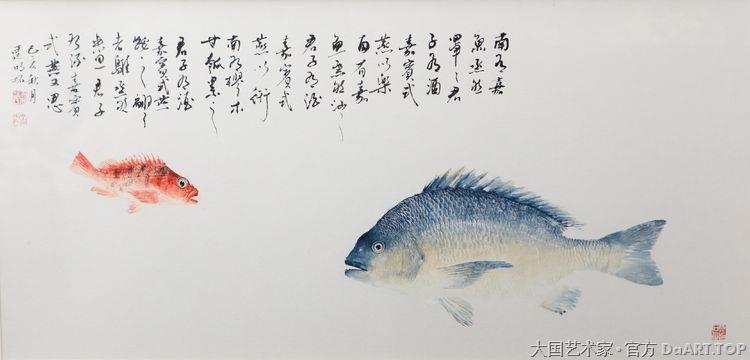 南有嘉
魚烝然
罩々君
子有酒
嘉賓式
燕以樂
南有嘉
魚烝然汕々
君子有酒
嘉賓式
燕以衎
南有樛木
甘瓠纍之
君子有酒
嘉賓式燕
綏之翩々
者鵻烝然
來思君子
有酒嘉賓
式燕又思
己亥秋月
大国艺术家·官方 DaART.TOP